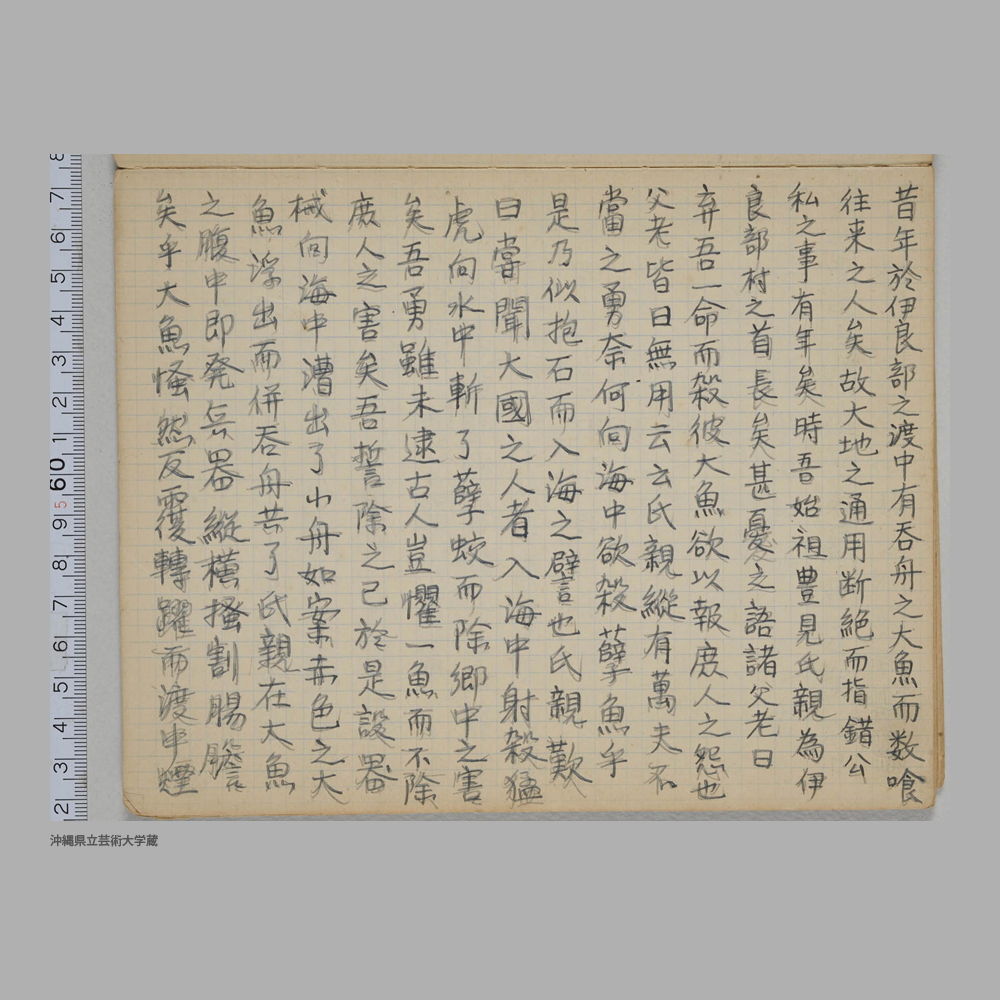 昔年於伊良部之渡中有呑舟之大魚而数喰
往来之人矣故大地之通用断絶而指錯公
私之事有年矣時吾始祖豊見氏親為伊
良部村之首長矣甚憂之語諸父老曰
弃吾一命而殺彼大魚欲以報庶人之怨也
父老皆曰無用云云氏親縦有萬夫不
當之勇奈何向海中欲殺孽魚乎
是乃似抱石而入海之譬也氏親歎
曰嘗聞大國之人者入海中射殺猛
虎向水中斬了孽蛟而除郷中之害
矣吾勇雖未逮古人豈懼一魚而不除
庶人之害矣吾誓除之已於是設器
械向海中漕出了小舟如案赤色之大
魚浮出而併呑舟共了氏親在大魚
之腹中即発兵器縦横掻割腸膽
矣乎大魚怪然反覆轉躍而渡中煙
2 3 4 5 6 7 8 9 5 60 1 2 3 4 5 6 7 8
沖縄県立芸術大学蔵